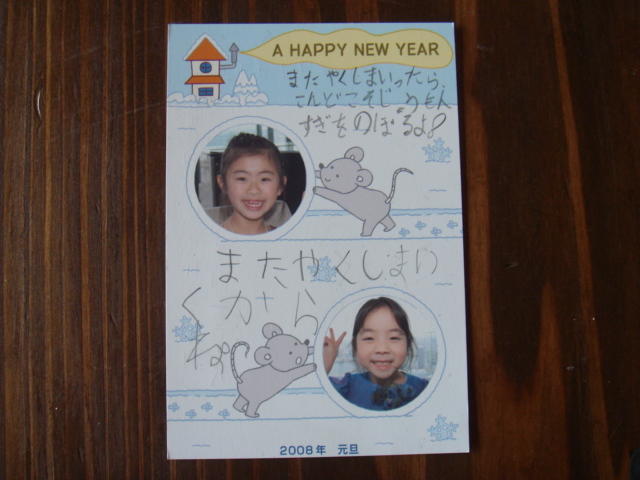 A HAPPY NEW YEAR
またやくしまいったら、
こんどこそじょうもん
すぎをのぼるよ。
またやくしまい
くからね
2008年 元旦